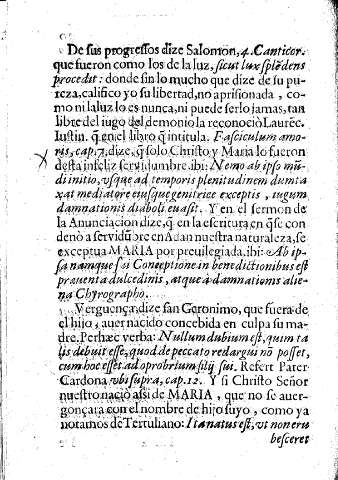 De sus progressos dize Salomón, 4. Canticor.
que fueron como los de la luz, sicut lux splẽdens
procedit: donde sin lo mucho que dize de su pu-
reza, califico yo su libertad, no aprisionada, co-
mo ni la luz lo es nunca, ni puede serlo jamas, tan
libre del iugo del demonio la reconociò Laurẽc.
Iustin. q̃ en el libro q̃ intitula. Fasciculum amo-
ris, cap. 7. dize, q̃ solo Christo y Maria lo fueron
desta infeliz servidumbre. ibi: Nemo ab ipso mũ
di initio, vsque ad temporis plenitudinem dumta
xat mediatore eiusque genitrice exceptis, iugum
damnationis diaboli euasit. Y en el sermon de
la Anunciacion dize, q̃ en la escritura en q̃ se con
denò a servidũbre en Adan nuestra naturaleza, se
exceptua MARIA por preuilegiada. ibi: Ab ip-
sa namque sui Conceptione in benedictionibus est
præuenta dulcedinis, atque à damnationis alie-
na Chyrographo.
Verguença, dize san Geronimo, que fuera de
el hijo, auer nacido concebida en culpa su ma-
dre. Per hæc verba: Nullum dubium est, quim ta
lis debuit esse, quod de peccato redargui nõ posset,
cum hoc esset ad oprobrium filij sui. Refert Pater
Cardona vbi supra, cap. 12. Y si Christo Señor
nuestro naciò assi de MARIA, que no se auer-
gonçara con el nombre de hijo suyo, como ya
notamos de Tertuliano: Ita natus est, vt non eru
besceret